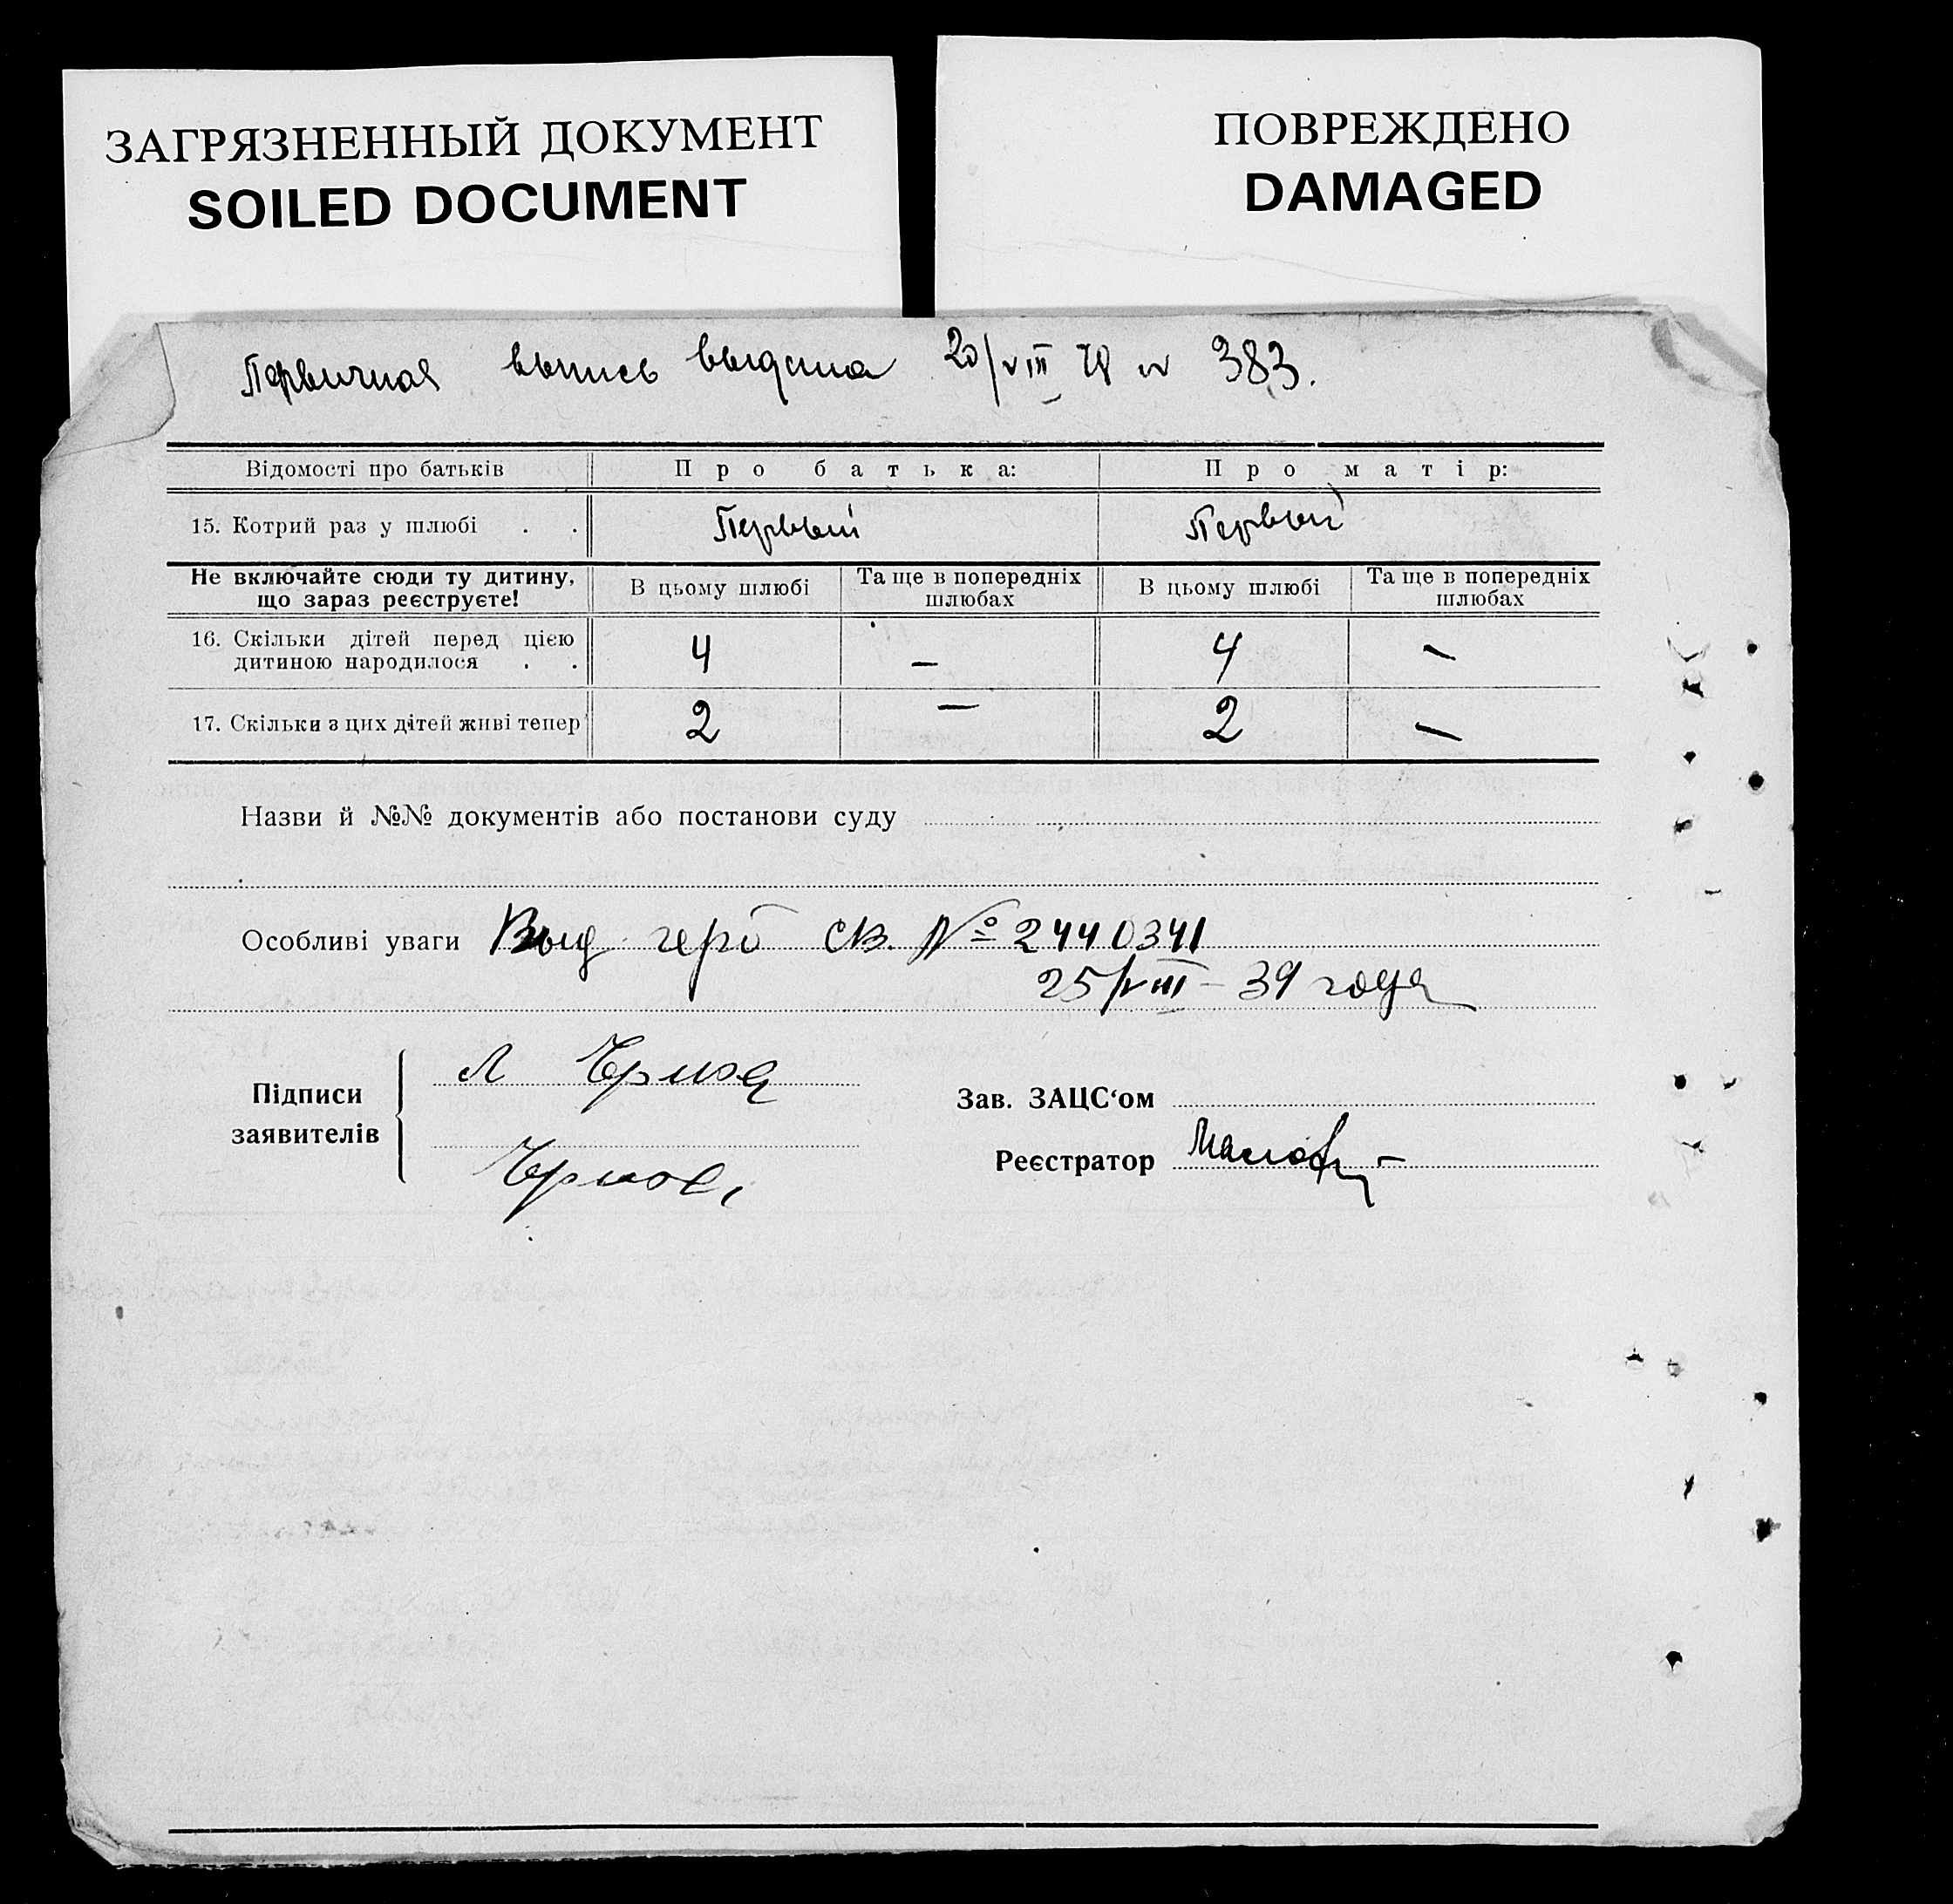 ЗАГРЯЗНЕННЫЙ ДОКУМЕНТ
SOILED DOCUMENT
ПОВРЕЖДЕНО
DAMAGED
Первичная выпись выдана 20/VIII 383.
Відомості про батьків Про батька: Про матір:
15. Котрий раз у шлюбі . . Первый Первый
Не включайте сюди ту дитину, що зараз реєструєте! В цьому шлюбі Та ще в попередніх шлюбах В цьому шлюбі Та ще в попередніх шлюбах
16. Скільки дітей перед цією
дитиною народилося . . 4 — 4 —
17. Скільки з цих дітей живі тепер 2 — 2 —
Назви й №№ документів або постанови суду
Особливі уваги Выд герб св. № 2440341
25/VIII – 39 года
Підписи
заявителів
Зав. ЗАЦС‘ом
Реєстратор